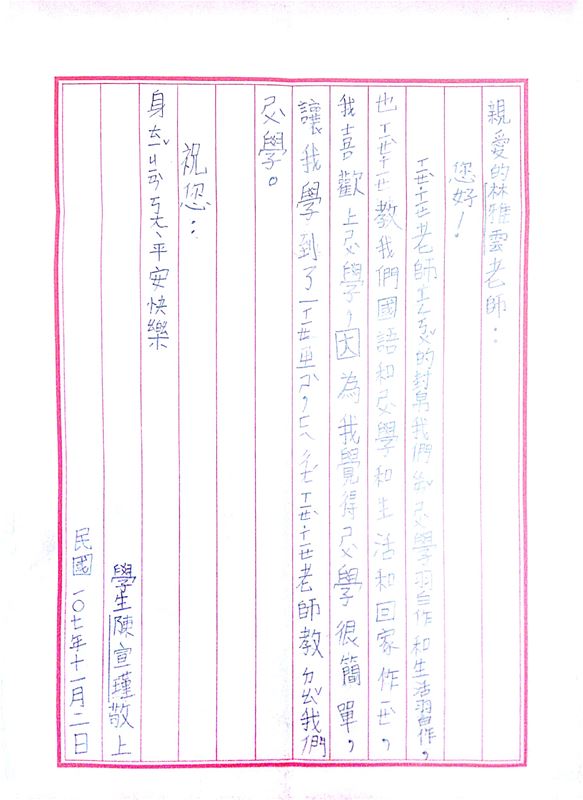 親愛的林雅雲老師：
您好！
ㄒㄧㄝˋㄒㄧㄝ老師ㄒㄧㄣㄎㄨˇ的封帛我們做忍學習作和生活習作，
也ㄒㄧㄝˋㄒㄧㄝ教我們國語和忍學和生活和回家作ㄧㄝˋ，
我喜歡上忍學，因為我覺得忍學很簡單，
讓我學到了ㄧㄒㄧㄝ
ㄒㄧㄝˋㄒㄧㄝ老師教ㄉㄠˇ我們
忍學。
祝您：
身ㄊㄧˇㄐㄧㄢˋㄎㄤ、平安快樂
學生陳宣瑾敬上
民國一〇七年十一月二日